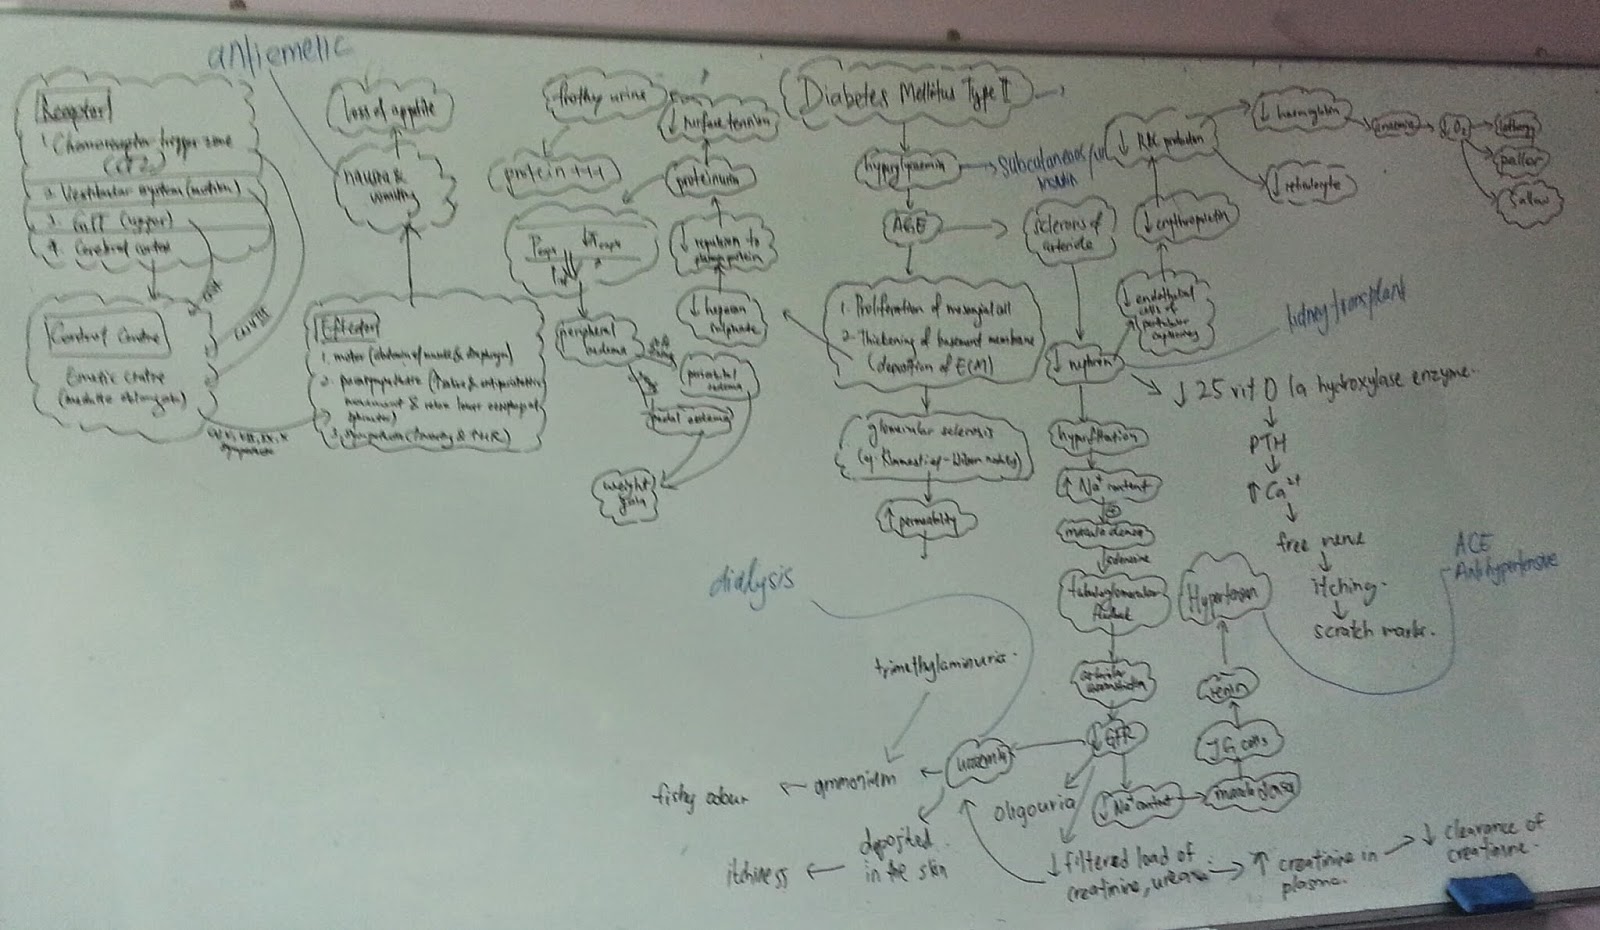 antiemetic
Receptor
1. Chemoreceptor trigger zone
(CTZ)
2. Vestibular system (motion)
3. GIT (upper)
4. Cerebral
Control Centre
Emetic centre
(medulla oblongata)
CN VIII
Effector
1. motor (abdominal muscle & diaphragm)
2. parasympathetic
movement & relax lower esophageal
sphincter)
3. sympathetic
loss of appetite
nausea &
vomiting
frothy urine
protein +++
↓ surface tension
proteinuria
↓ repulsion to
plasma protein
↓ heparan
sulphate
peripheral
oedema
periorbital
oedema
pedal oedema
weight
gain
Diabetes Mellitus Type II
AGE
subcutaneous
insulin
1. Proliferation of mesangial cell
2. Thickening of basement membrane
(deposition of ECM)
glomerular sclerosis
↑ permeability
sclerosis of
arteriole
↓ nephron
↓ endothelial
cells of
peritubular
capillary
↓ erythropoietin
↓ RBC production
↓ haemoglobin
anaemia
↓ O2
lethargy
pallor
↓ reticulocyte
kidney transplant
↓ 25 vit D 1α hydroxylase enzyme.
PTH
↑ Ca2+
free nerve
itching.
scratch marks.
hyperfiltration
↑ Na+ content
macula densa
adenosine
tubuloglomerular
Hypertension
ACE
Antihypertensive
renin
JG cells
macula densa
↓ Na+ content
↓ GFR
oligouria
dialysis
uraemia
trimethylaminuria.
ammonium
fishy odour
deposited
in the skin
itchiness
↓ filtered load of
creatinine,
↑ creatinine in
plasma.
↓ clearance of
creatinine.